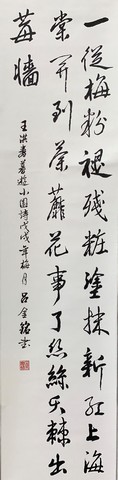 一從梅粉褪殘粧塗抹新紅上海
棠開到荼蘼花事了絲絲夭棘出
莓牆
王淇春暮遊小園詩戊戌年梅月呂金銘書